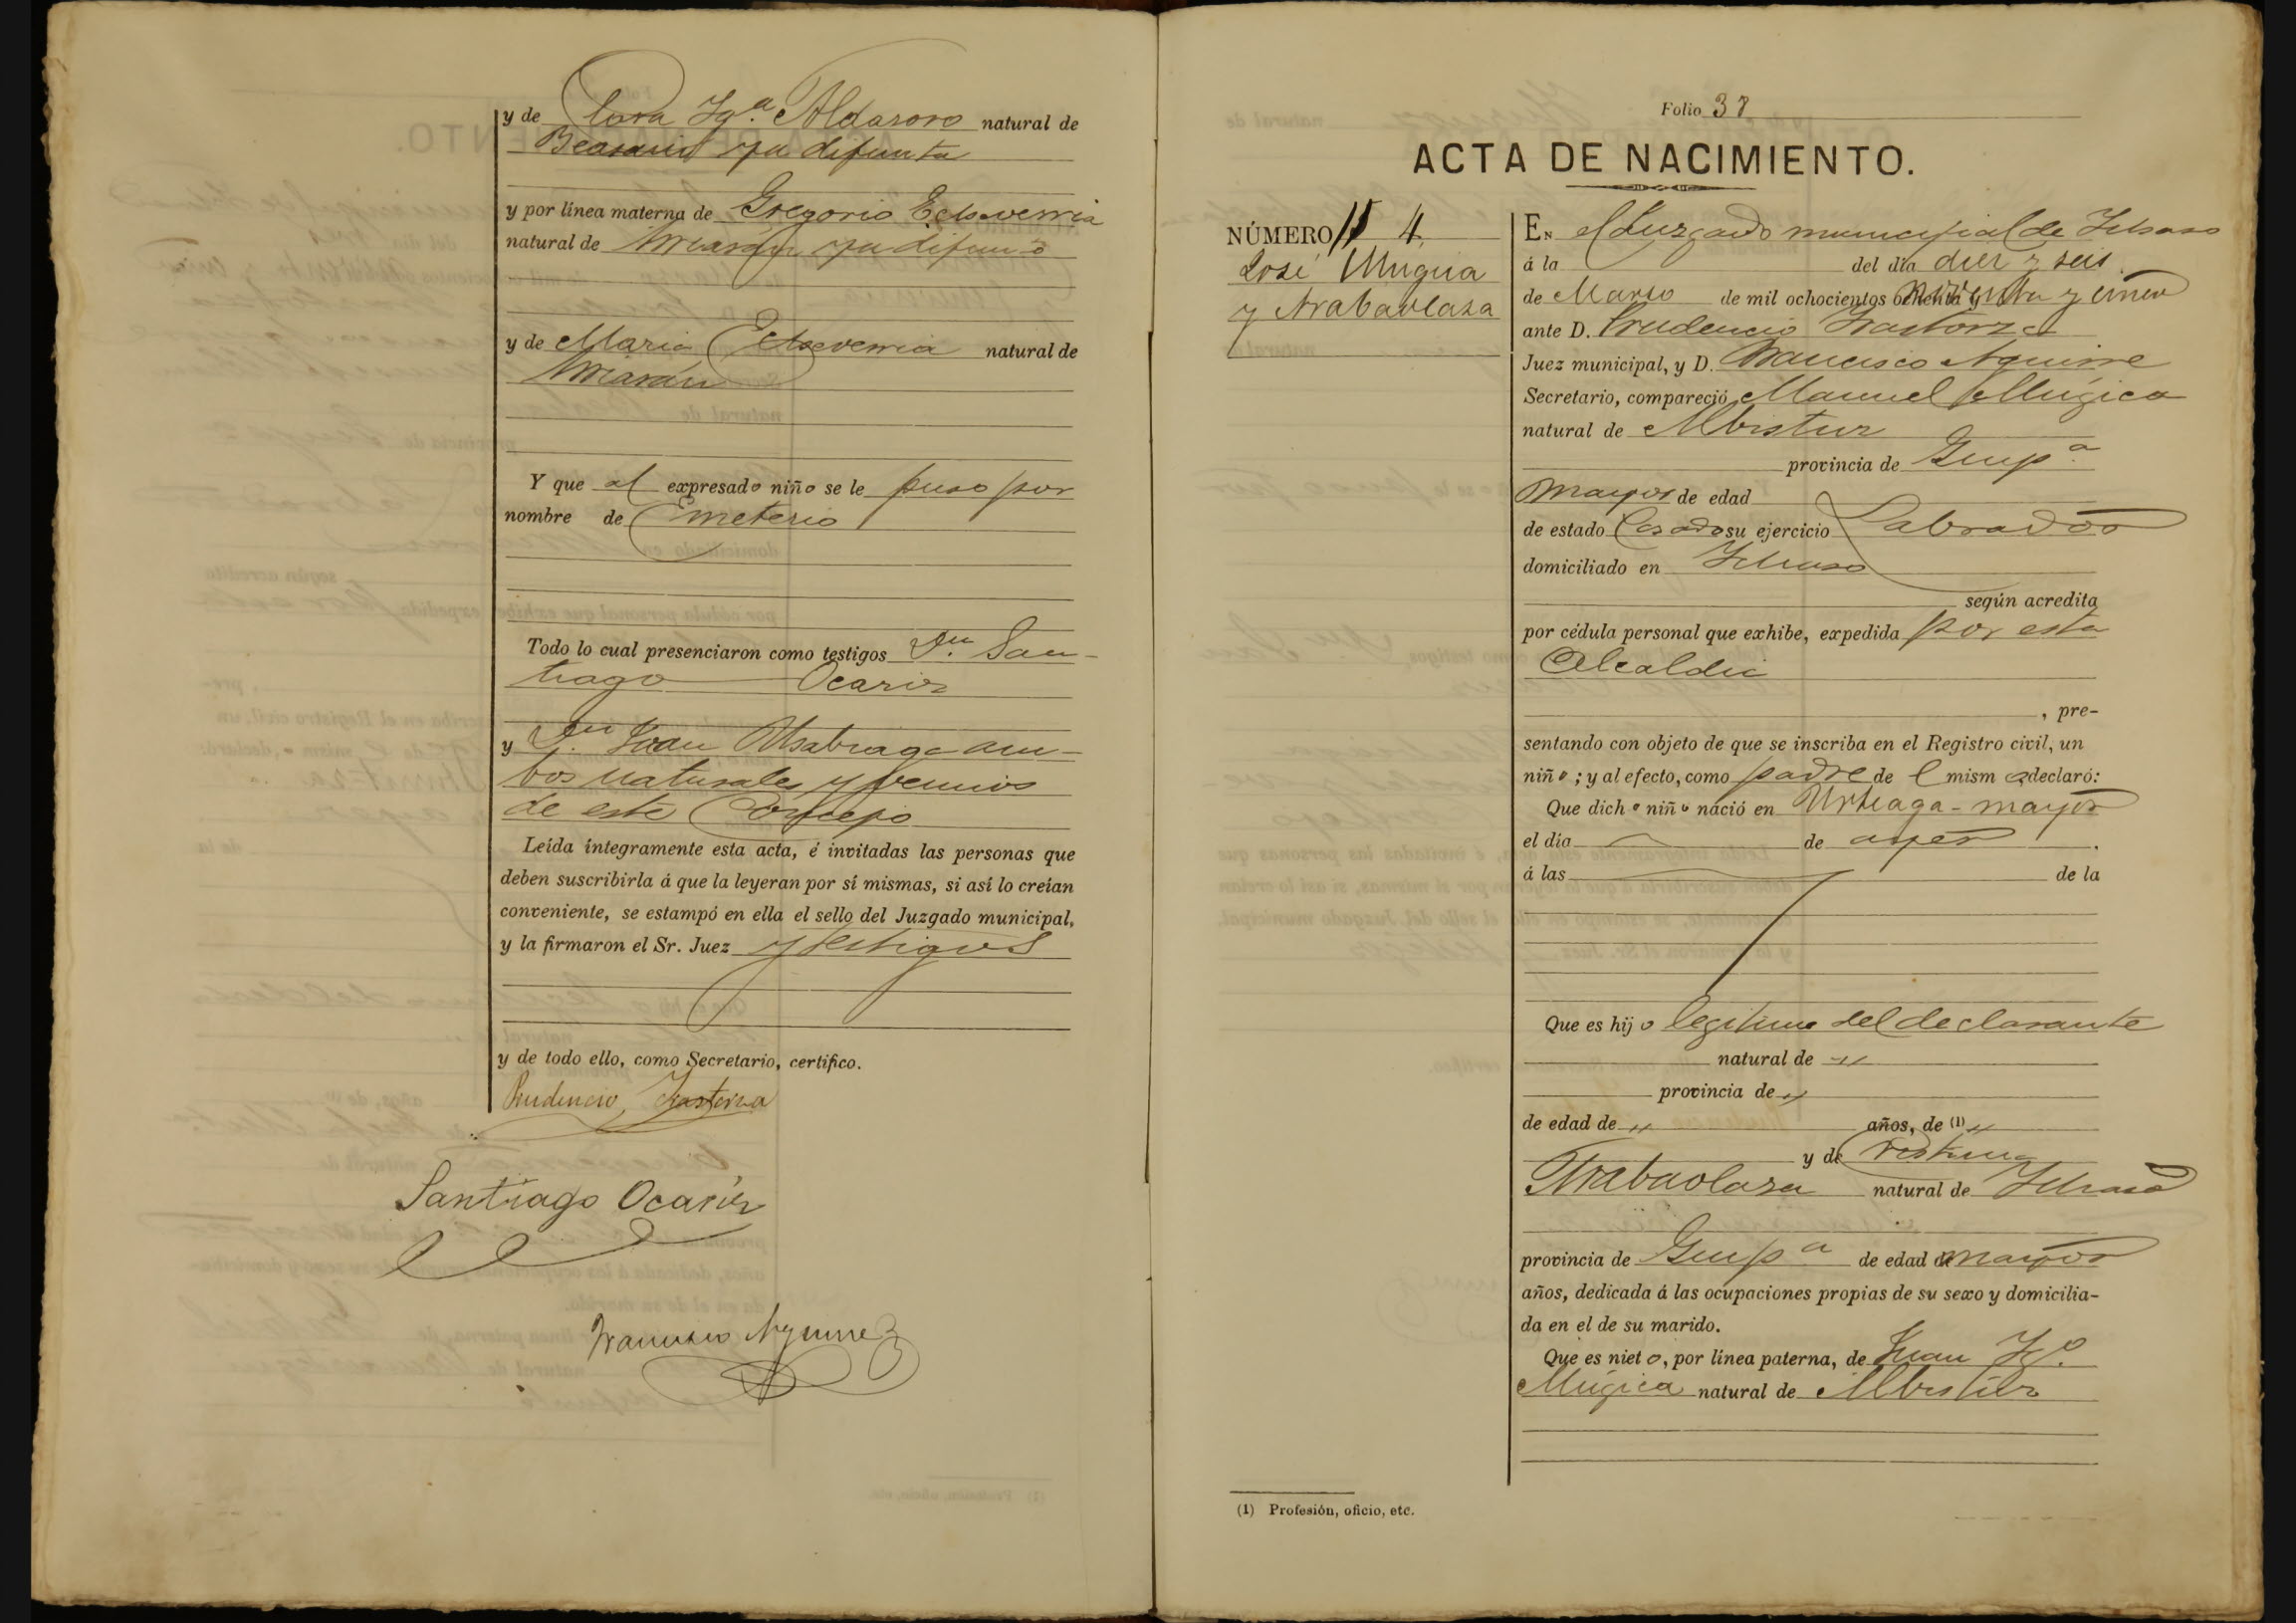 y de Clara Ig.ª Aldasoro natural de
Beasain ya difunta
y por línea materna de Gregorio Echeverria
natural de Arriarán ya difunto
y de Maria Echeverria natural de
Arriarán
Y que al expresado niño se le puso por
nombre de Emeterio
Todo lo cual presenciaron como testigos D.n San-
tiago Ocariz
y D.n Juan Usabiaga am-
bos naturales y vecinos
de este Concejo
Leída íntegramente esta acta, é invitadas las personas que
deben suscribirla á que la leyeran por sí mismas, si así lo creían
conveniente, se estampó en ella el sello del Juzgado municipal,
y la firmaron el Sr. Juez y testigos
y de todo ello, como Secretario, certifico.
Prudencio Irastorza
Santiago Ocariz
Francisco Aguirre
Folio 38
ACTA DE NACIMIENTO.
NÚMERO 4
José Mugica
y Arabaolaza
EN el Juzgado municipal de Ichaso
á la del día diez y seis
de Marzo de mil ochocientos noventa y cinco
ante D. Prudencio Irastorza
Juez municipal, y D. Francisco Aguirre
Secretario, compareció Manuel Múgica
natural de Albistur
provincia de Guip.ª
mayor de edad
de estado Casado su ejercicio Labrador
domiciliado en Ichaso
según acredita
por cédula personal que exhibe, expedida por esta
Alcaldia
, pre-
sentando con objeto de que se inscriba en el Registro civil, un
niño; y al efecto, como padre de l mismo declaró:
Que dicho niño nació en Urteaga-mayor
el día de ayer.
á las de la
Que es hijo legitimo del declarante
natural de "
provincia de "
de edad de " años, de (1) "
y de Cristina
Arabaolaza natural de Ichaso
provincia de Guip.ª de edad de mayor
años, dedicada á las ocupaciones propias de su sexo y domicilia-
da en el de su marido.
Que es nieto, por línea paterna, de Juan Ig.º
Múgica natural de Albistur
(1) Profesión, oficio, etc.